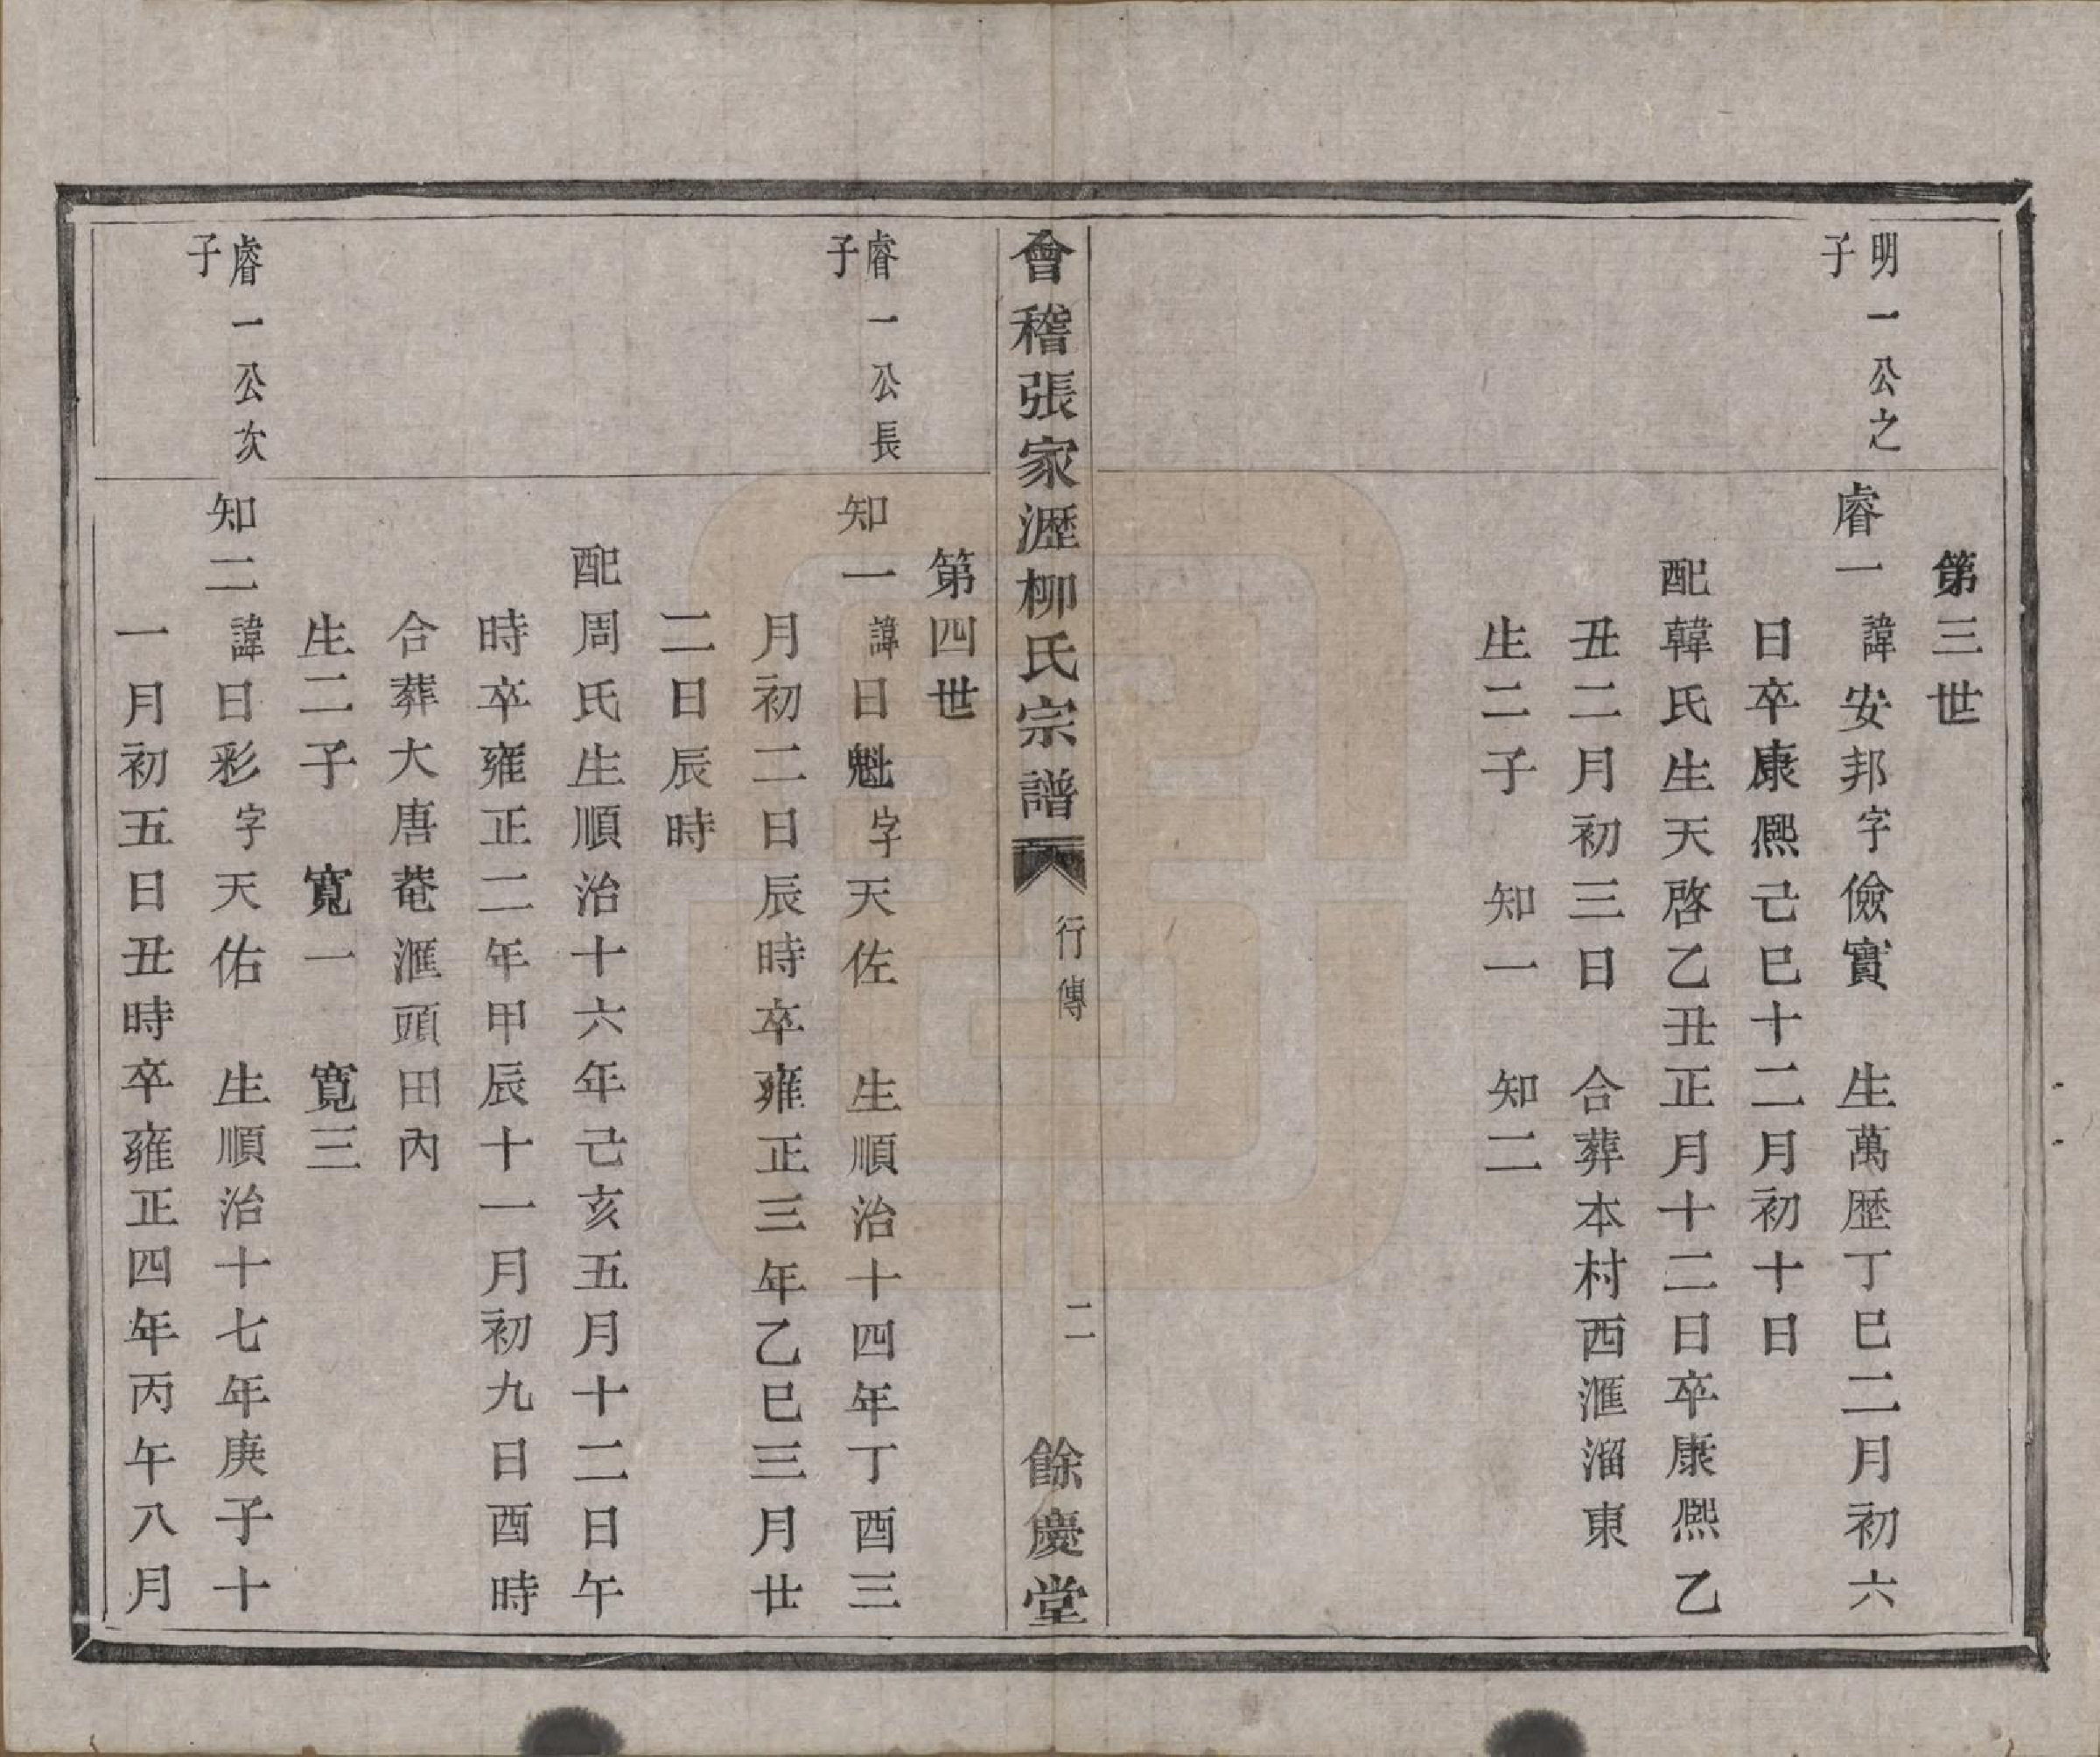 第三世
明一公之子
睿一 諱安邦字儉實 生萬歷丁巳二月初六
日卒康熙己巳十二月初十日
配韓氏生天啓乙丑正月十二日卒康熙乙
丑二月初三日 合葬本村西滙溜東
生二子 知一 知二
會稽張家瀝柳氏宗譜 行傳 二 餘慶堂
第四世
睿一公長子
知一 諱日魁字天佐 生順治十四年丁酉三
月初二日辰時卒雍正三年乙巳三月廿
二日辰時
配周氏生順治十六年己亥五月十二日午
時卒雍正二年甲辰十一月初九日酉時
合葬大唐菴滙頭田內
生二子 寬一 寬三
睿一公次子
知二 諱日彩字天佑 生順治十七年庚子十
一月初五日丑時卒雍正四年丙午八月